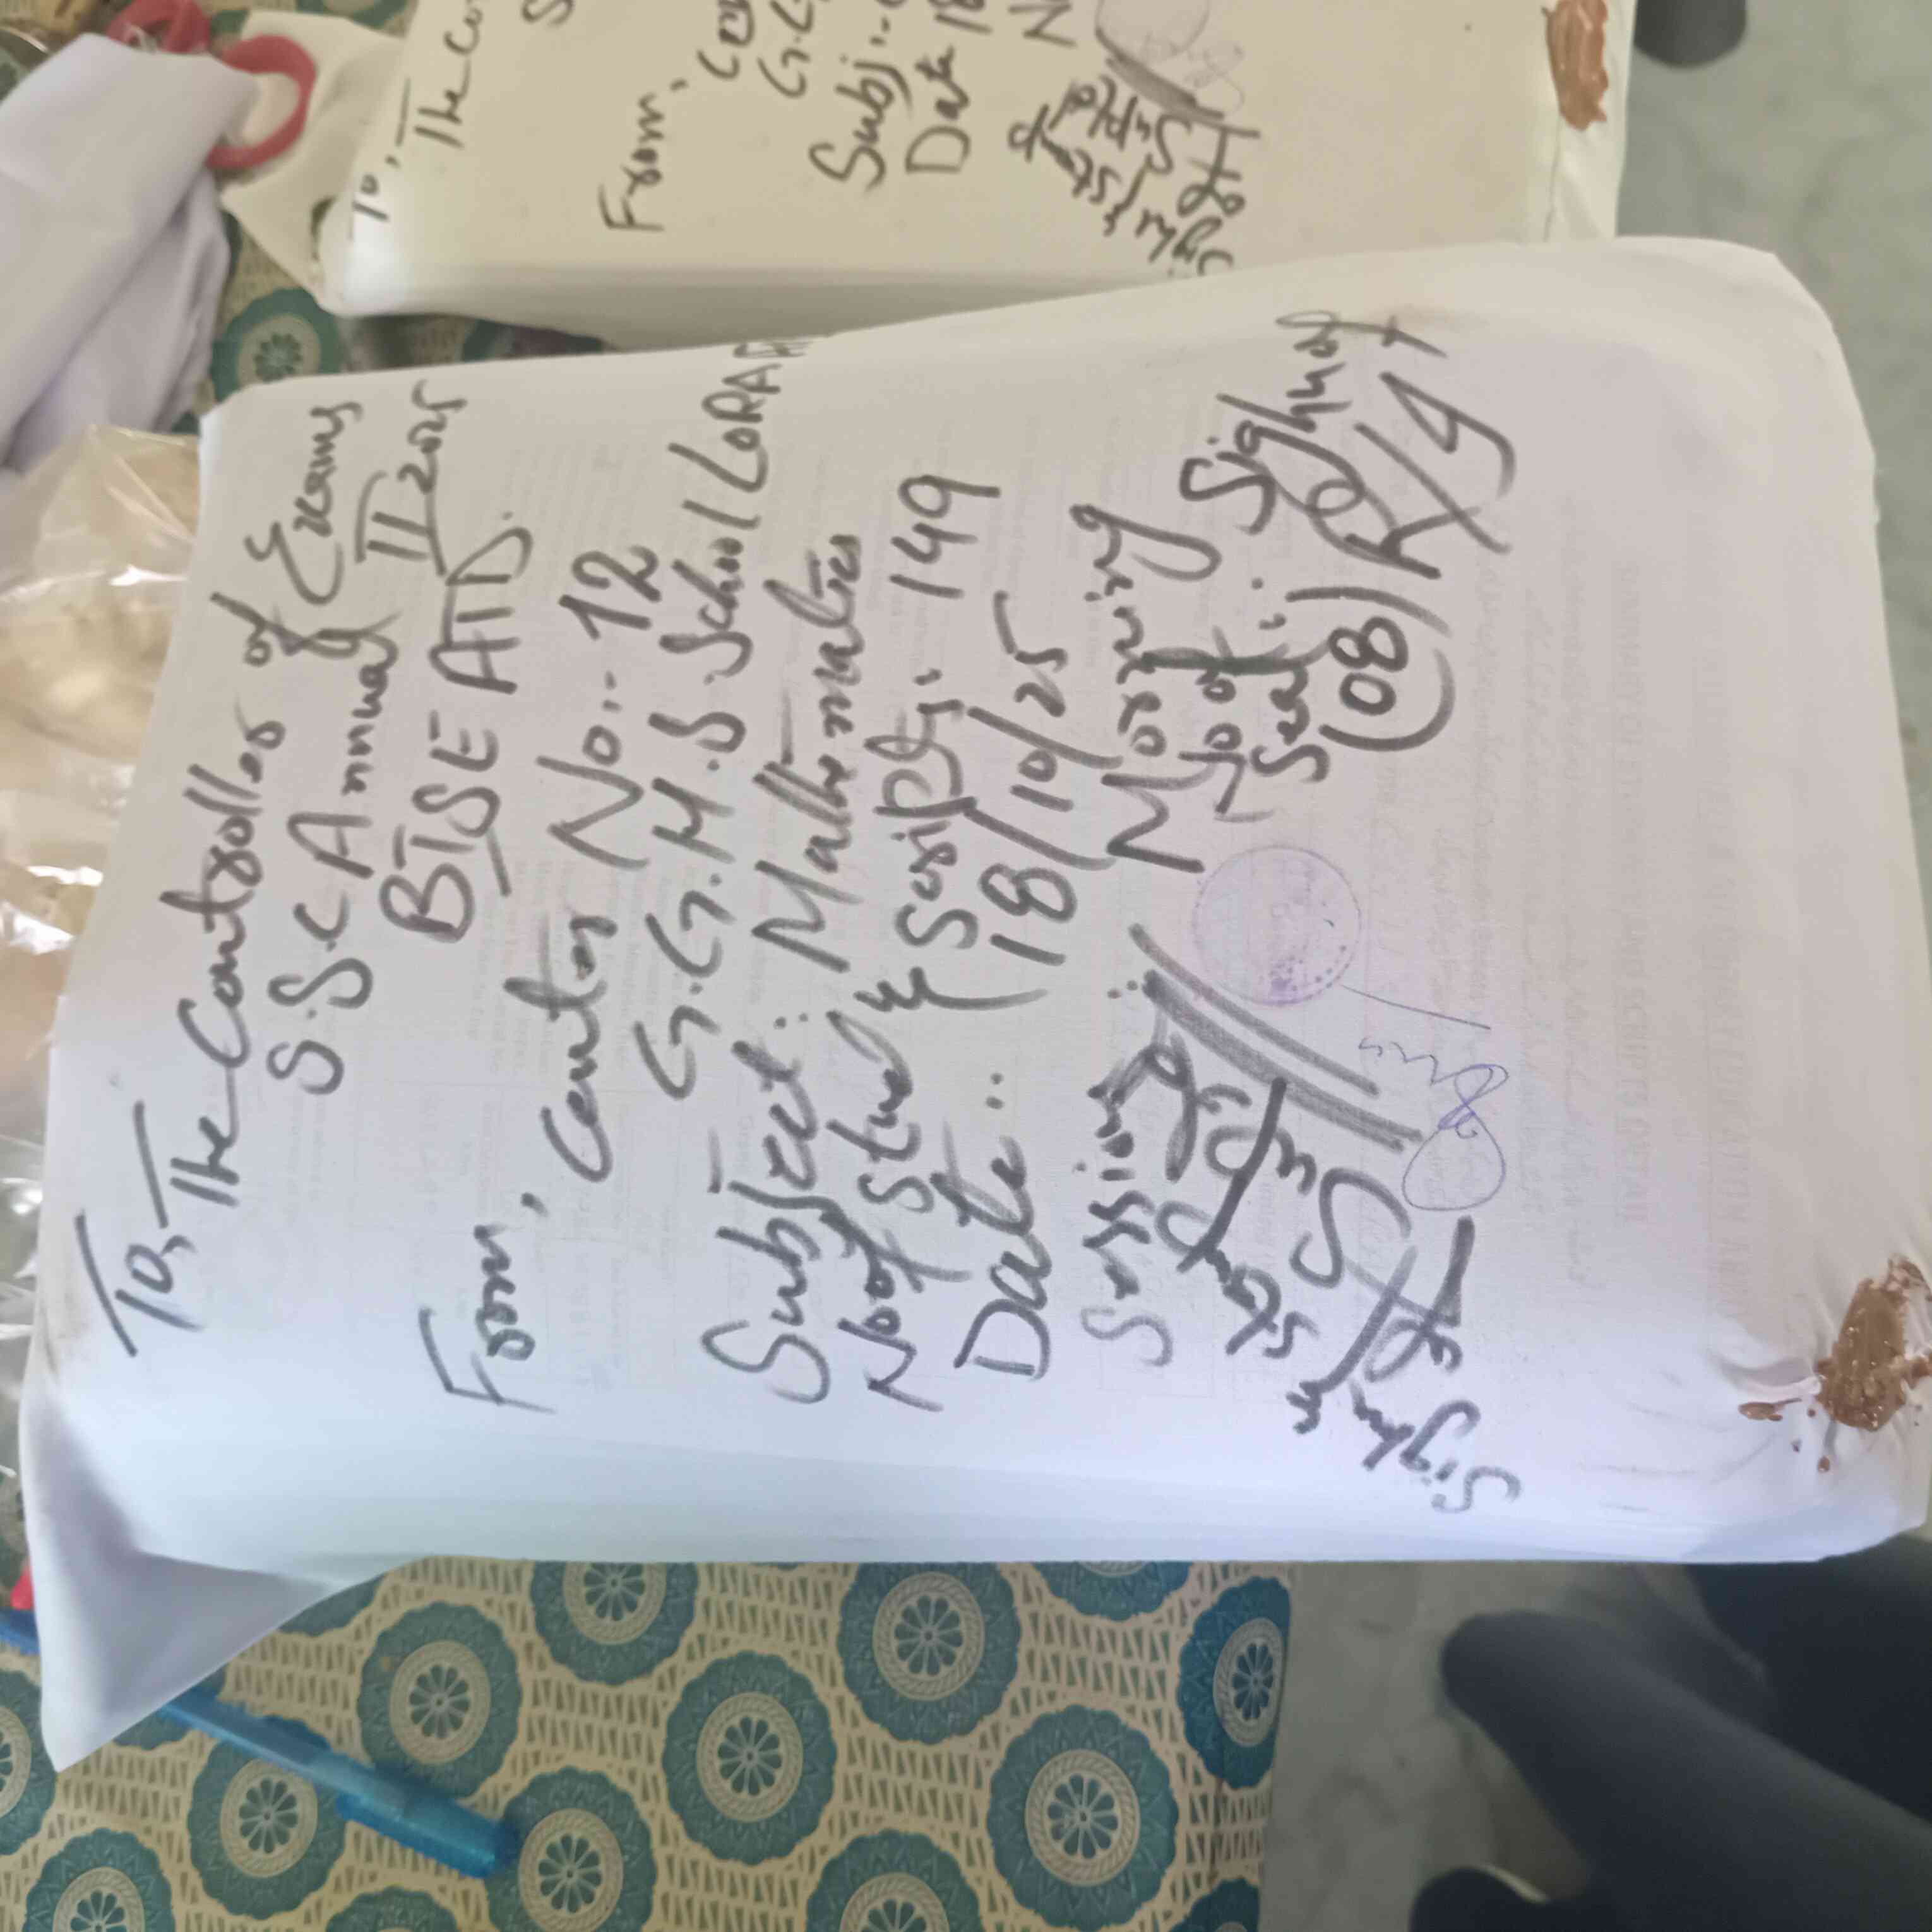 To, The Controller of Exams
S.S.C Annual II 2025
BISE ATD.
From, Center No.- 12
G.G.H.S.School LORA
Subject: Mathematics
No of Stud & Script: 149
Date.. 18/10/25
Session: Morning
No of Seal: (08)
Sign of
R/I
Sign &
Stamp of
Supdt
To, The Co
S
From, Cen
G.G
Subj:-
Date 18
N
Sign &
Stamp of
Supdt